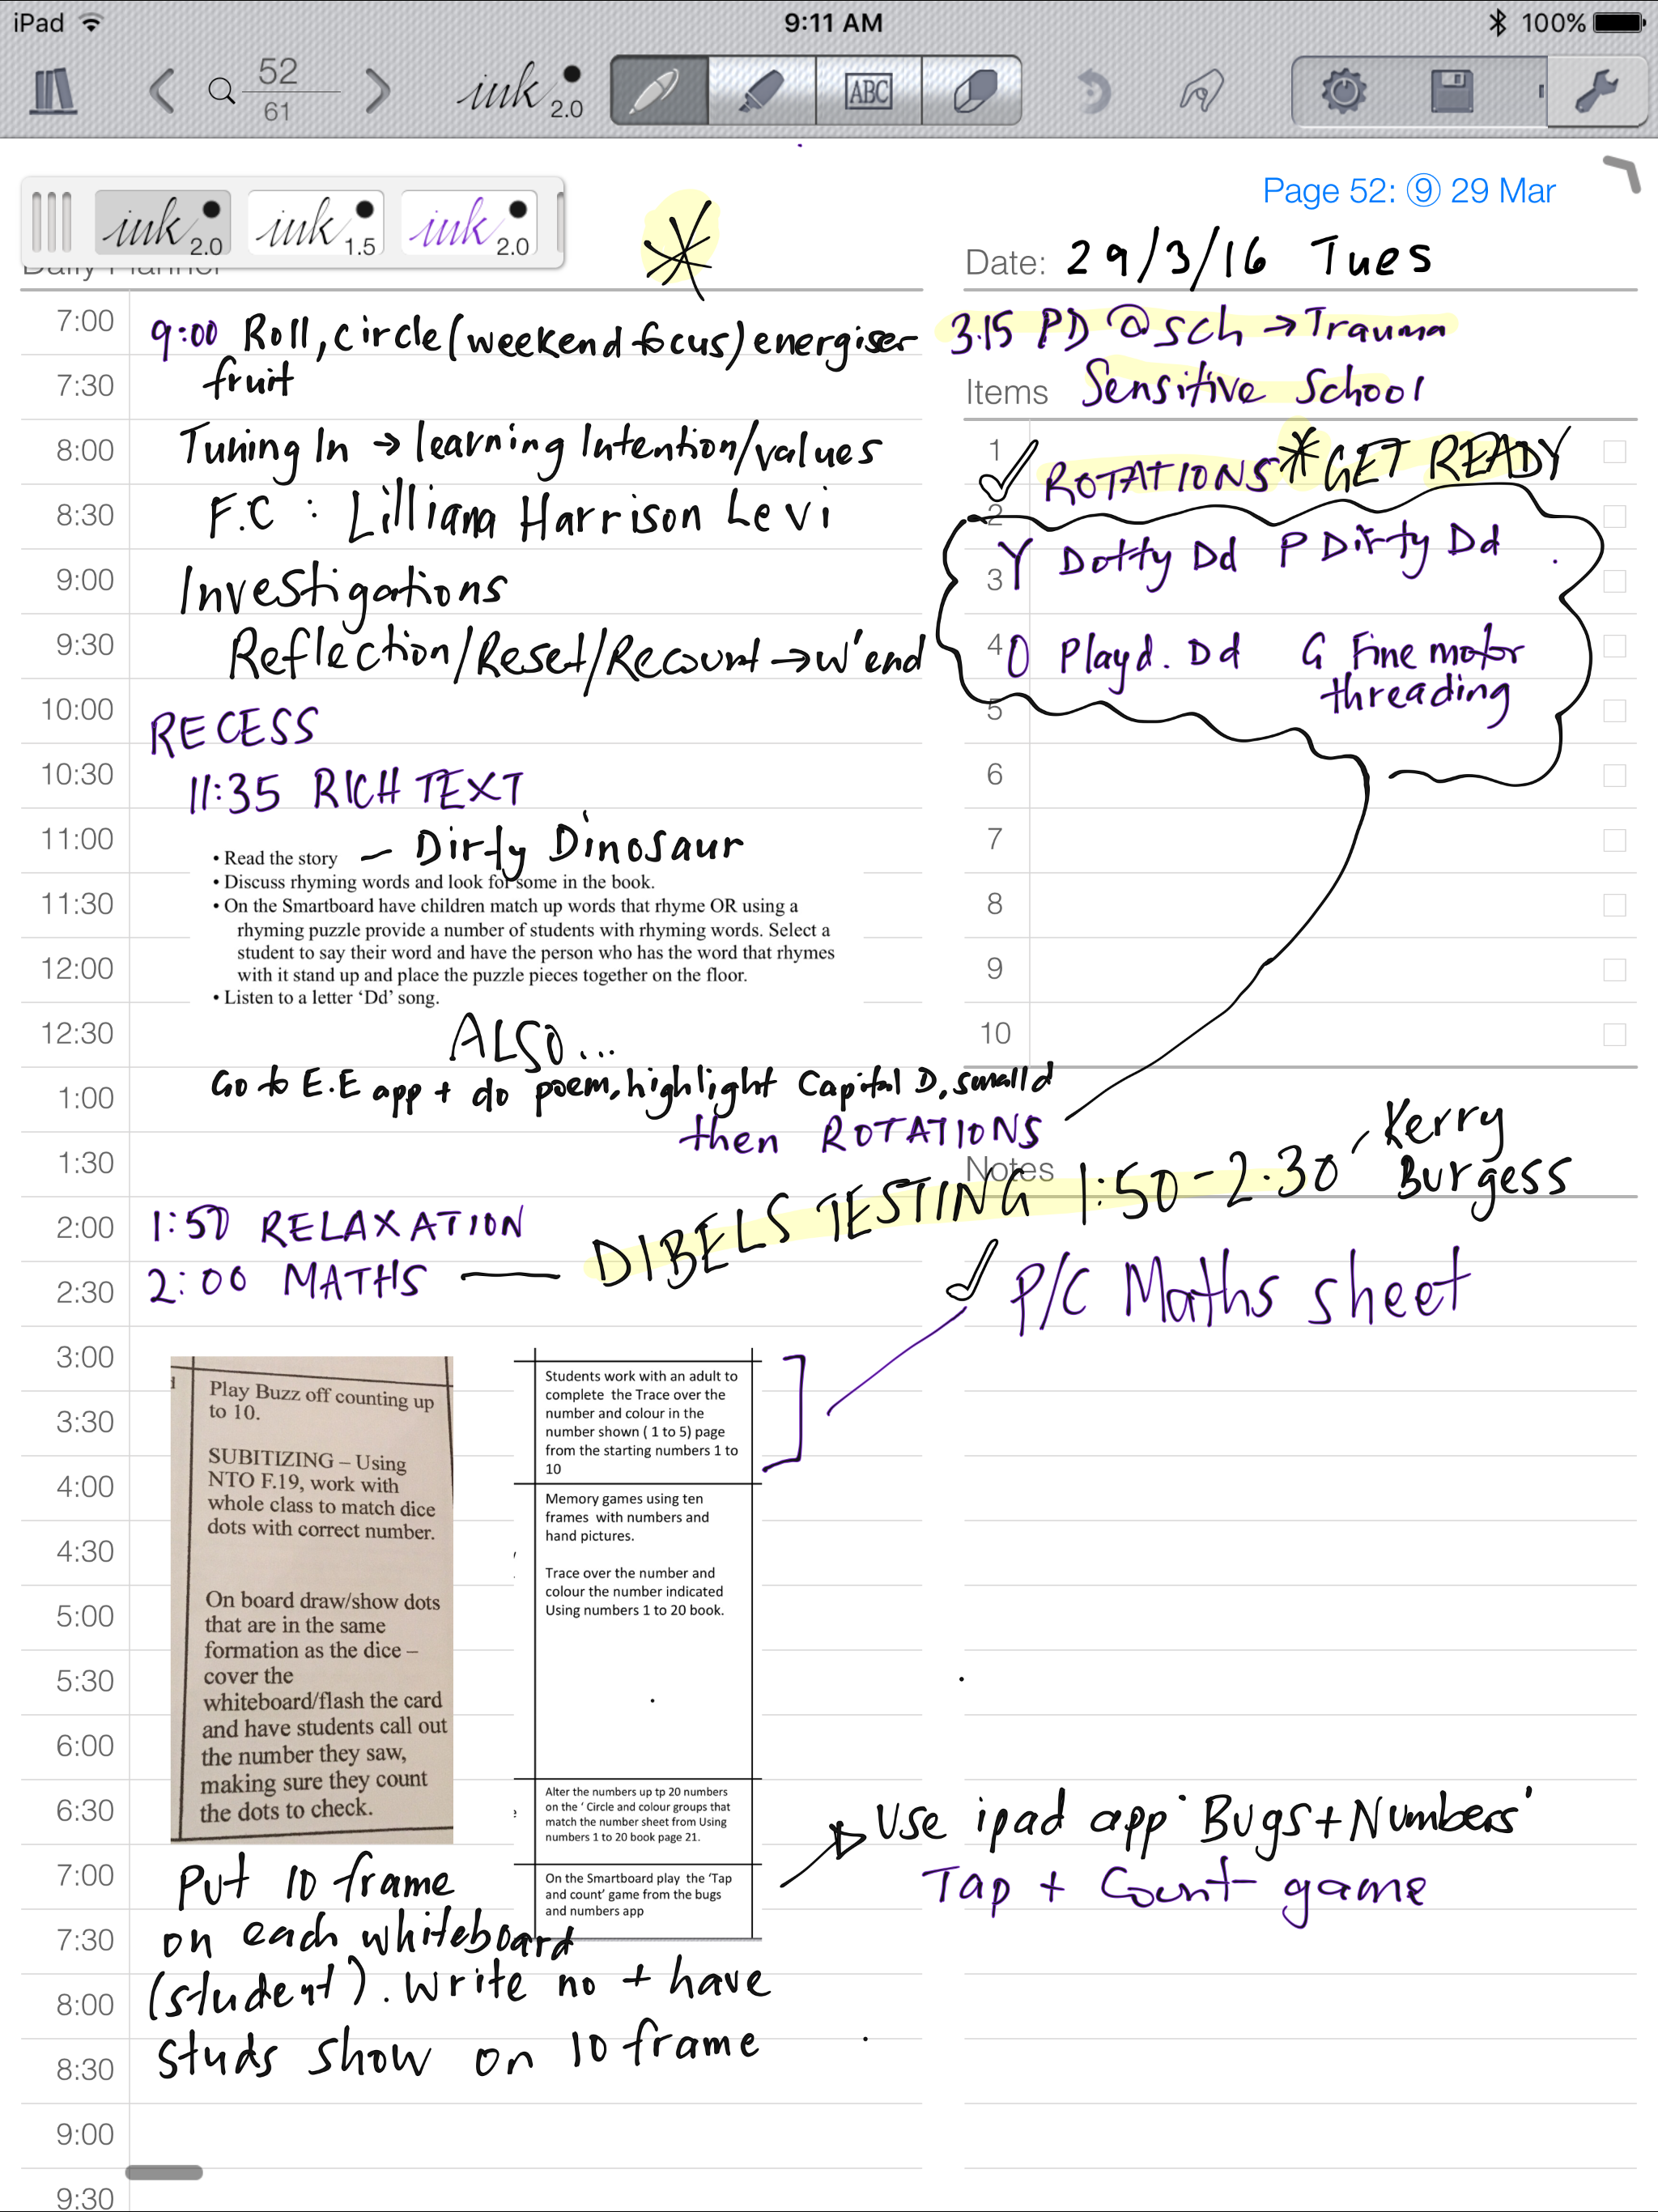 iPad
9:11 AM
100%
52
61
ink 2.0
ABC
ink 2.0
ink 1.5
ink 2.0
Page 52: ⑨ 29 Mar
Daily Planner
Date: 29/3/16 Tues
7:00
9:00 Roll, circle (weekend focus) energiser
fruit
7:30
8:00
Tuning In → learning Intention/values
8:30
F.C : Lilliana Harrison Levi
9:00
Investigations
9:30
Reflection/Reset/Recount → w'end
10:00
RECESS
10:30
11:35 RICH TEXT
11:00
• Read the story – Dirty Dinosaur
• Discuss rhyming words and look for some in the book.
11:30
• On the Smartboard have children match up words that rhyme OR using a
rhyming puzzle provide a number of students with rhyming words. Select a
student to say their word and have the person who has the word that rhymes
12:00
with it stand up and place the puzzle pieces together on the floor.
• Listen to a letter ‘Dd’ song.
12:30
ALSO...
1:00
Go to E.E app + do poem, highlight Capital D, small d
then ROTATIONS
1:30
2:00
1:50 RELAXATION
2:30
2:00 MATHS — DIBELS TESTING 1:50-2.30
Kerry
Burgess
3.15 PD @ sch → Trauma
Items Sensitive School
1
ROTATIONS * GET READY
2
3
Y Dotty Dd P Dirty Dd
4
O Playd. Dd G Fine motor
threading
5
6
7
8
9
10
Notes
P/C Maths sheet
3:00
3:30
4:00
4:30
5:00
5:30
6:00
6:30
7:00
7:30
8:00
8:30
9:00
9:30
Play Buzz off counting up
to 10.
SUBITIZING – Using
NTO F.19, work with
whole class to match dice
dots with correct number.
On board draw/show dots
that are in the same
formation as the dice –
cover the
whiteboard/flash the card
and have students call out
the number they saw,
making sure they count
the dots to check.
Students work with an adult to
complete the Trace over the
number and colour in the
number shown ( 1 to 5) page
from the starting numbers 1 to
10
Memory games using ten
frames with numbers and
hand pictures.
Trace over the number and
colour the number indicated
Using numbers 1 to 20 book.
Alter the numbers up tp 20 numbers
on the ‘ Circle and colour groups that
match the number sheet from Using
numbers 1 to 20 book page 21.
On the Smartboard play the ‘Tap
and count’ game from the bugs
and numbers app
Use ipad app 'Bugs + Numbers'
Tap + Count game
Put 10 frame
on each whiteboard
(student). Write no + have
studs show on 10 frame